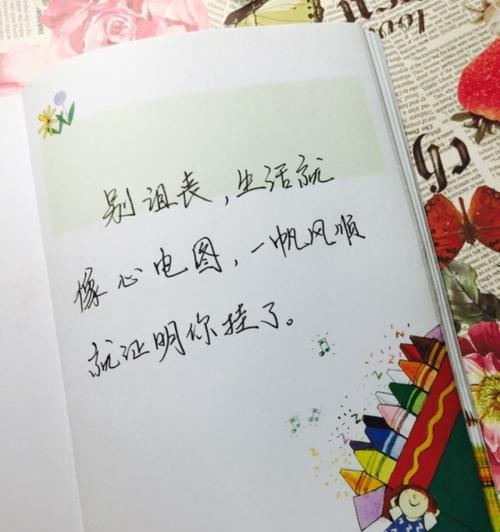 别诅丧，生活就
像心电图，一帆风顺
就证明你挂了。
love